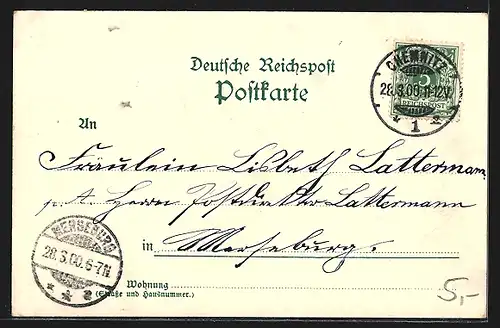 Deutsche Reichspost
Postkarte
CHEMNITZ
28.3.00.11-12V.
* 1 *
5
REICHSPOST
An
Fräulein Lisbeth Lattermann
p. A. Herrn Postdirektor Lattermann
in Merseburg.
MERSEBURG
28.3.00.6-7N
* * 2
Wohnung
(Straße und Hausnummer.)
5,-